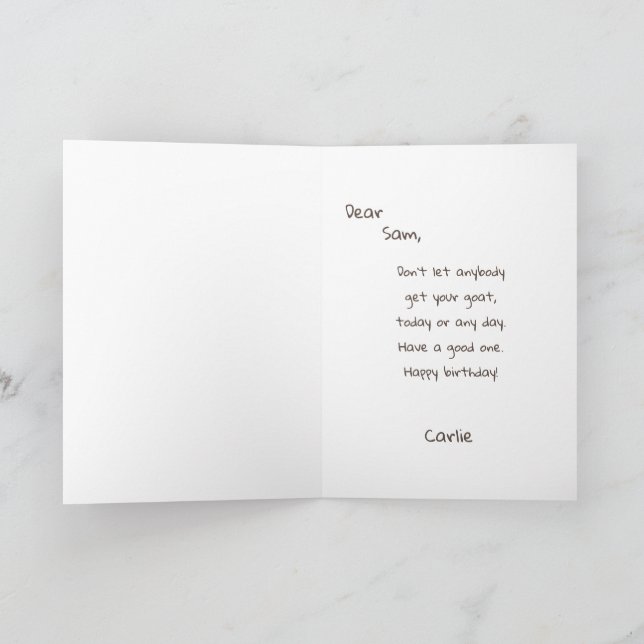 Dear
Sam,
Don't let anybody
get your goat,
today or any day.
Have a good one.
Happy birthday!
Carlie